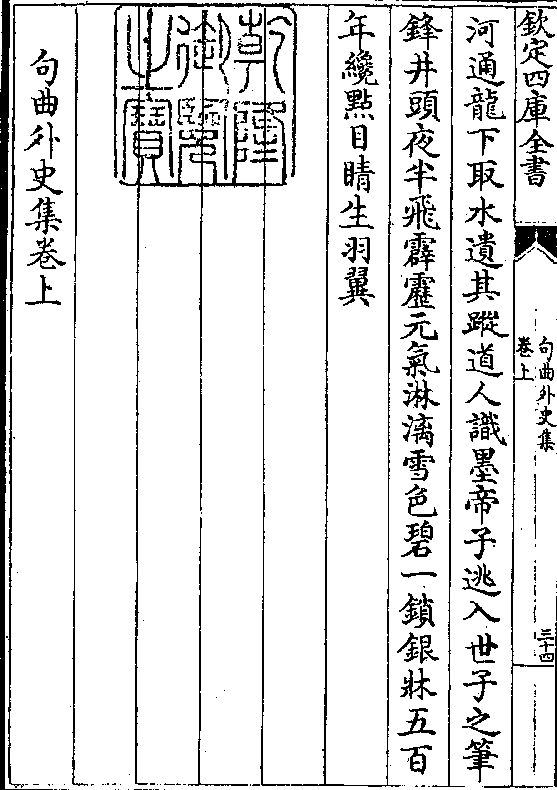 欽定四庫全書
句曲外史集
卷上
三十四
河通龍下取水遺其蹤道人識墨帝子逃入世子之筆
鋒井頭夜半飛霹靂元氣淋漓雪色碧一鎖銀牀五百
年纔點目睛生羽翼
乾隆御覽之寶
句曲外史集卷上